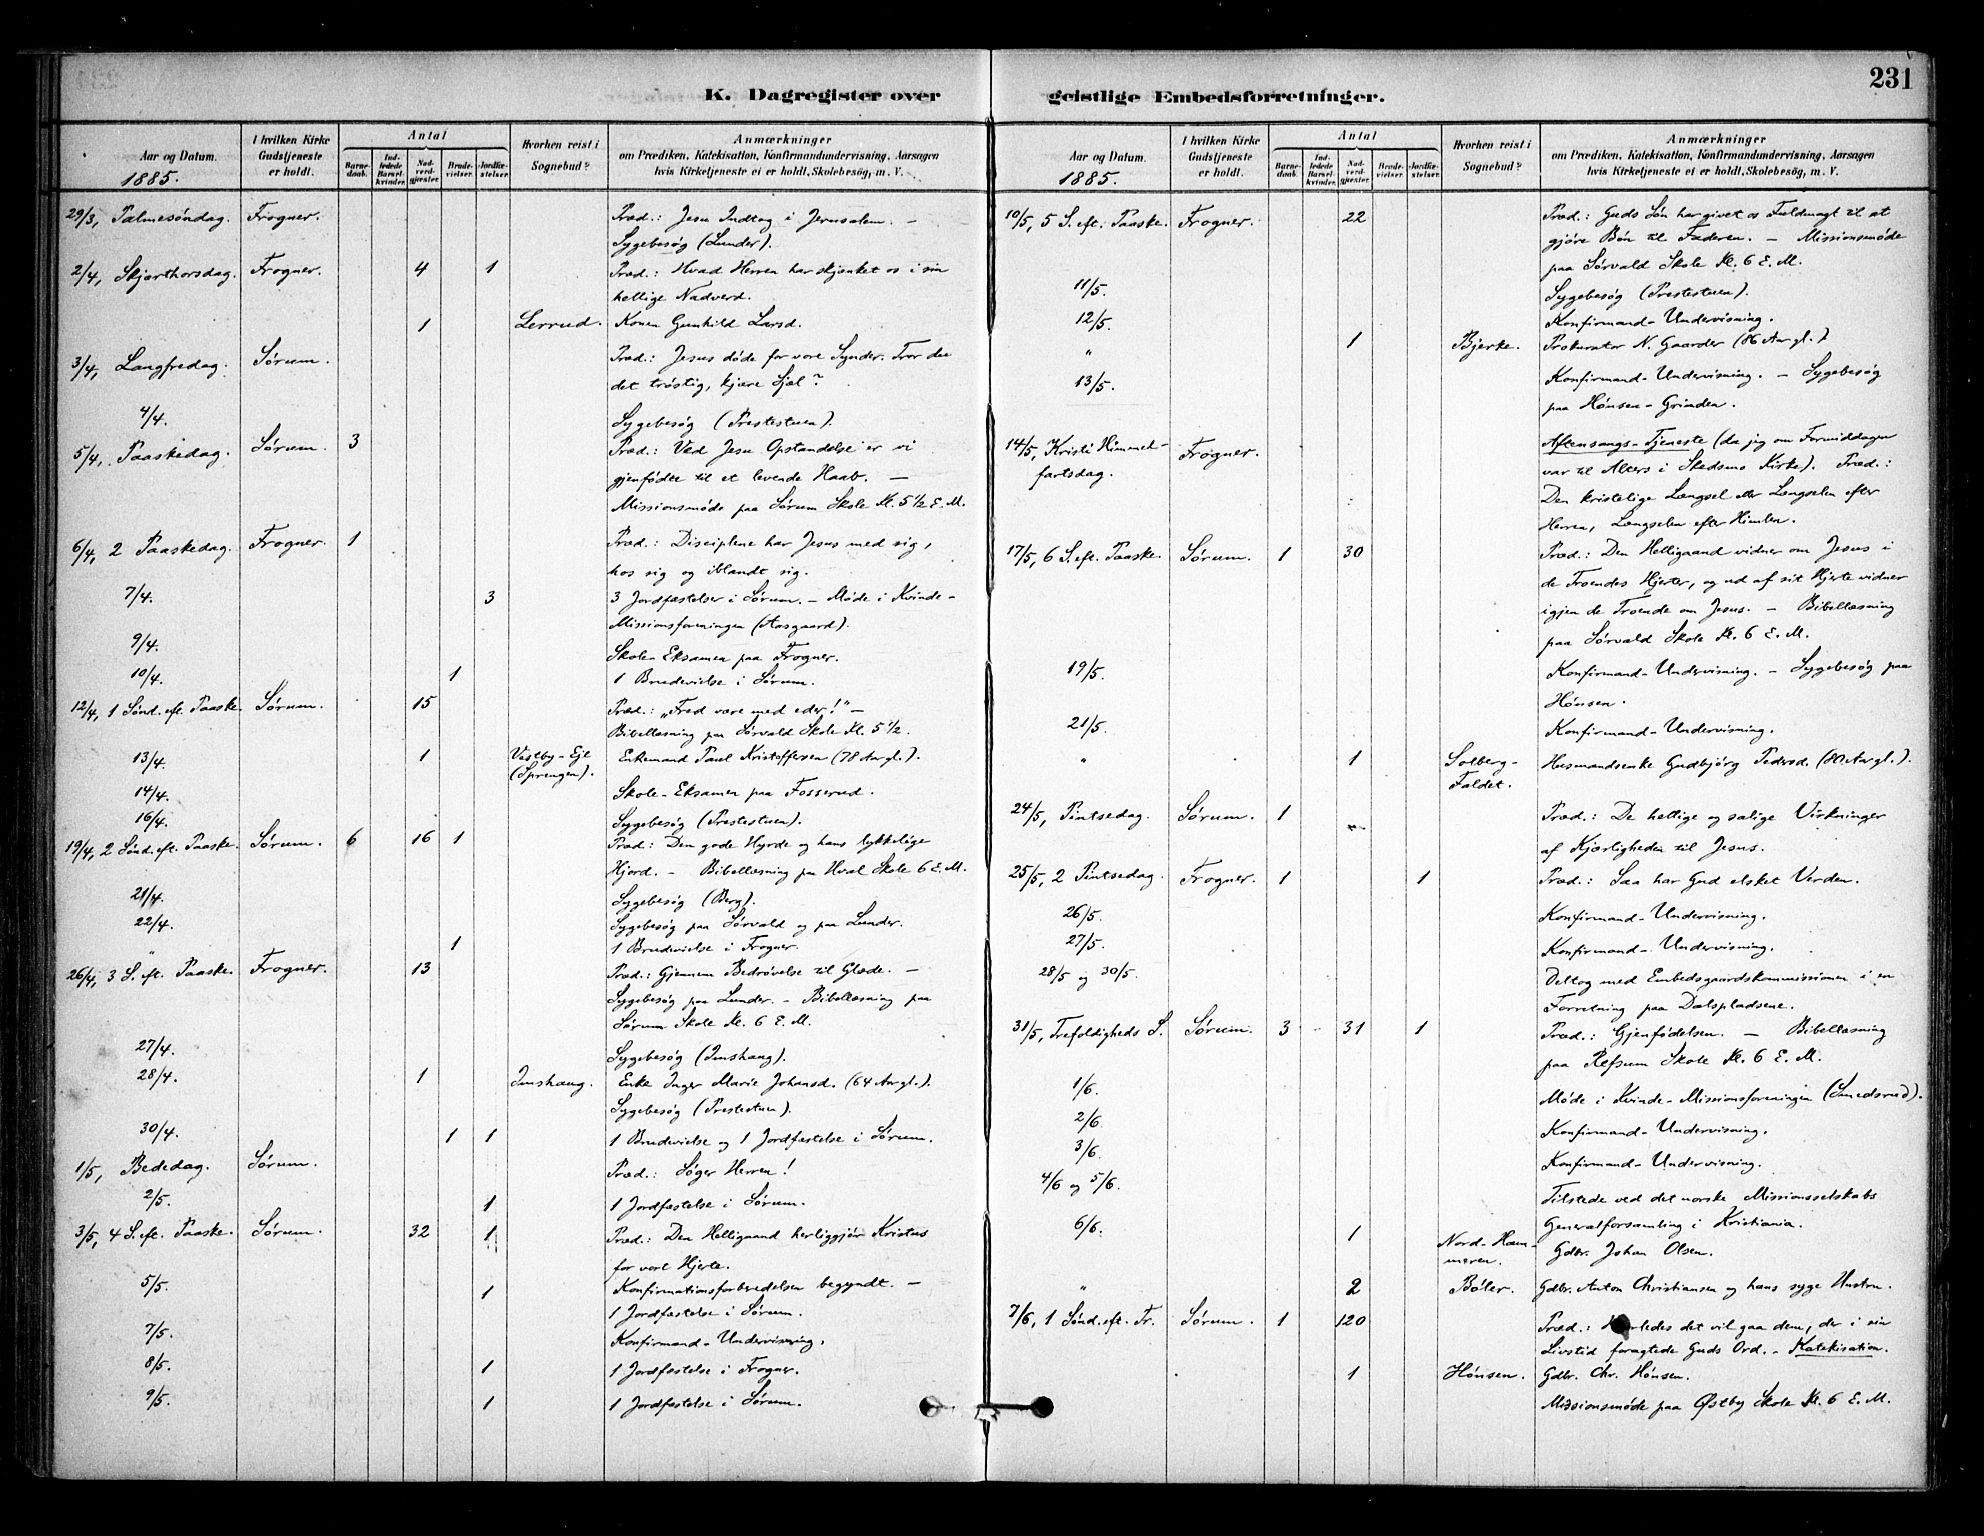 231
K. Dagregister over
geistlige Embedsforretninger.
Aar og Datum.
1885.
I hvilken Kirke
Gudstjeneste
er holdt.
Antal
Barne-
daab.
Ind-
ledede
Barsel-
kvinder.
Nad-
verd-
gjester.
Brude-
vielser.
Jordfæ-
stelser.
Hvorhen reist i
Sognebud?
Anmærkninger
om Prædiken, Katekisation, Konfirmandundervisning, Aarsagen
hvis Kirketjeneste ei er holdt, Skolebesøg, m. V.
29/3, Palmesöndag. Frogner. Præd.: Jesu Indtog i Jerusalem. –
Sygebesög (Lunder).
2/4, Skjærthorsdag. Frogner. 4 1 Præd.: Hvad Herren har skjænket os i sin
hellige Nadverd.
1 Lerrud. Konen Gunhild Larsd.
3/4, Langfredag. Sörum. Præd.: Jesus döde for vore Synder. Tror du
det tröstig, kjære Sjæl?
4/4. Sygebesög (Prestestuen).
5/4, Paaskedag. Sörum. 3 Præd.: Ved Jesu Opstandelse er vi
gjenfödte til et levende Haab. –
Missionsmöde paa Sörum Skole Kl. 5 1/2 E.M.
6/4, 2 Paaskedag. Frogner. 1 Præd.: Disciplene har Jesus med sig,
hos sig og iblandt sig.
7/4. 3 3 Jordfæstelser i Sörum. – Möde i Kvinde-
Missionsforeningen (Aasgaard).
9/4. Skole-Eksamen paa Frogner.
10/4. 1 1 Brudevielse i Sörum.
12/4, 1 Sönd. eft. Paaske. Sörum. 15 Præd.: „Fred være med eder!" –
Bibellæsning paa Sörvald Skole Kl. 5 1/2.
13/4. 1 Vestby-Eje Enkemand Paul Kristoffersen (78 Aar gl.).
(Sprengen).
14/4. Skole-Eksamen paa Fosserud.
16/4. Sygebesög (Prestestuen).
19/4, 2 Sönd. eft. Paaske. Sörum. 6 16 1 Præd.: Den gode Hyrde og hans lykkelige
Hjord. – Bibellæsning paa Hval Skole 6 E.M.
21/4. Sygebesög (Berg).
22/4. Sygebesög paa Sörvald og paa Lunder.
" 1 1 Brudevielse i Frogner.
26/4, 3 S. eft. Paaske. Frogner. 13 Præd.: Gjennem Bedrövelse til Glæde. –
Sygebesög paa Lunder. – Bibellæsning paa
Sörum Skole Kl. 6 E.M.
27/4. Sygebesög (Imshaug).
28/4. 1 Imshaug. Enke Inger Marie Johansd. (64 Aar gl.).
Sygebesög (Prestestuen).
30/4. 1 1 1 Brudevielse og 1 Jordfæstelse i Sörum.
1/5, Bededag. Sörum. Præd.: Söger Herren!
2/5. 1 1 Jordfæstelse i Sörum.
3/5, 4 S. eft. Paaske. Sörum. 32 1 Præd.: Den Helligaand herliggjör Kristus
for vort Hjerte.
5/5. 1 Konfirmationsforberedelsen begyndt. –
1 Jordfæstelse i Sörum.
7/5. Konfirmand-Undervisning.
8/5. 1 1 Jordfæstelse i Frogner.
9/5. 1 1 Jordfæstelse i Sörum.
Aar og Datum.
1885.
I hvilken Kirke
Gudstjeneste
er holdt.
Antal
Barne-
daab.
Ind-
ledede
Barsel-
kvinder.
Nad-
verd-
gjester.
Brude-
vielser.
Jordfæ-
stelser.
Hvorhen reist i
Sognebud?
Anmærkninger
om Prædiken, Katekisation, Konfirmandundervisning, Aarsagen
hvis Kirketjeneste ei er holdt, Skolebesøg, m. V.
10/5, 5 S. eft. Paaske. Frogner. 22 Præd.: Guds Sön har givet os Fuldmagt til at
gjöre Bön til Faderen. – Missionsmöde
paa Sörvald Skole Kl. 6 E.M.
11/5. Sygebesög (Prestestuen).
12/5. Konfirmand-Undervisning.
" 1 Bjerke. Prokurator N. Gaarder (86 Aar gl.)
13/5. Konfirmand-Undervisning. – Sygebesög
paa Hönsen-Grinden.
14/5, Kristi Himmel- Frogner. Aftensangs-Tjeneste (da jeg om Formiddagen
fartsdag. var til Alters i Skedsmo Kirke). Præd.:
Den kristelige Længsel eller Længselen efter
Herren, Længselen efter Himlen.
17/5, 6 S. eft. Paaske. Sörum. 1 30 Præd.: Den Helligaand vidner om Jesus i
de Troendes Hjerter, og ud af sit Hjerte vidner
igjen de Troende om Jesus. – Bibellæsning
paa Sörvald Skole Kl. 6 E.M.
19/5. Konfirmand-Undervisning. – Sygebesög paa
Hönsen.
21/5. Konfirmand-Undervisning.
" 1 Solberg- Husmandsenke Gudbjörg Pedersd. (80 Aar gl.).
Faldet.
24/5, Pintsedag. Sörum. 1 Præd.: De hellige og salige Virkninger
af Kjærligheden til Jesus.
25/5, 2 Pintsedag. Frogner. 1 1 Præd.: Saa har Gud elsket Verden.
26/5. Konfirmand-Undervisning.
27/5. Konfirmand-Undervisning.
28/5 og 30/5. Deltog med Embedsgaardskommissionen i en
Forretning paa Dalspladsene.
31/5, Trefoldigheds S. Sörum. 3 31 1 Præd.: Gjenfödelsen. – Bibellæsning
paa Refsum Skole Kl. 6 E.M.
1/6. Möde i Kvinde-Missionsforeningen (Smedsrud).
2/6. Konfirmand-Undervisning.
3/6. Konfirmand-Undervisning.
4/6 og 5/6. Tilstede ved det norske Missionsselskabs
Generalforsamling i Kristiania.
6/6. 1 Nord-Ham- Gdbr. Johan Olsen.
meren.
" 2 Böler. Gdbr. Anton Christiansen og hans syge Hustru.
7/6, 1 Sönd. eft. Tr. Sörum. 1 120 Præd.: det vil gaa dem, der i sin
Livstid foragtede Guds Ord. – Katekisation.
1 Hönsen. Gdbr. Chr. Hönsen.
Missionsmöde paa Østby Skole Kl. 6 E.M.